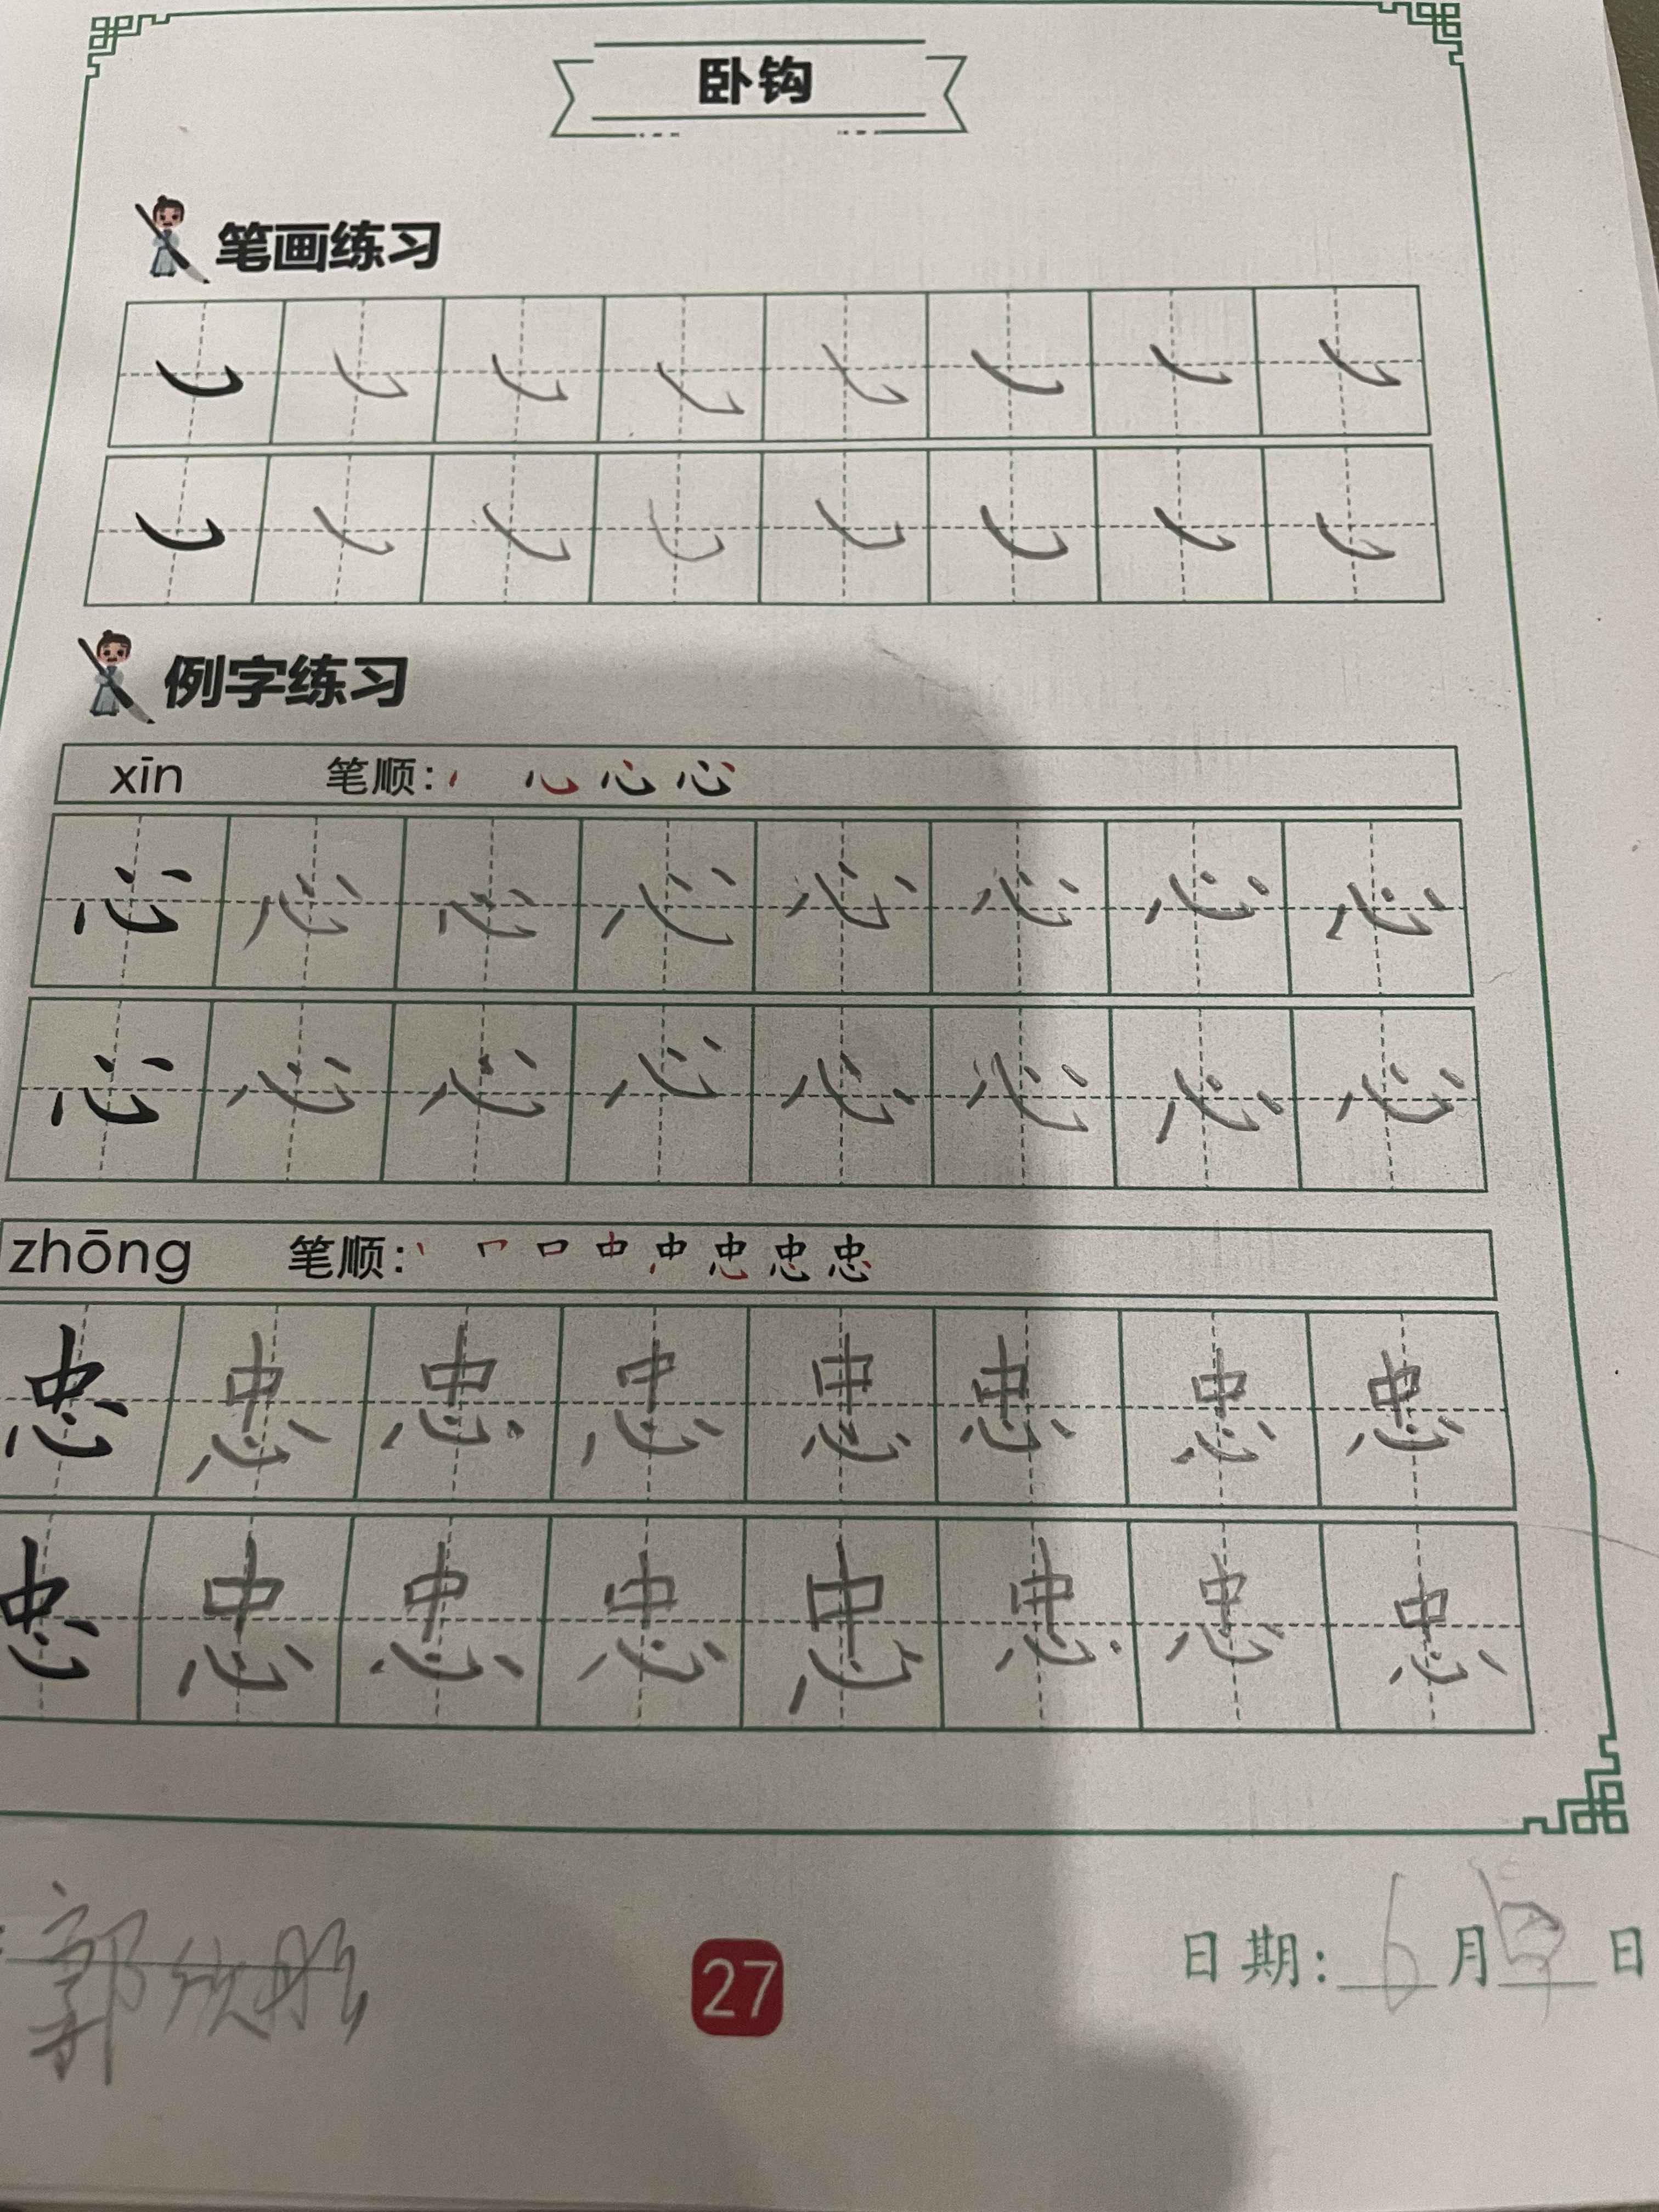 卧钩
笔画练习
㇃ ㇃ ㇃ ㇃ ㇃ ㇃ ㇃ ㇃
㇃ ㇃ ㇃ ㇃ ㇃ ㇃ ㇃ ㇃
例字练习
xīn 笔顺: 心
心 心 心 心 心 心 心 心
心 心 心 心 心 心 心 心
zhōng 笔顺: 丨 口 中 忠
忠 忠 忠 忠 忠 忠 忠 忠
忠 忠 忠 忠 忠 忠 忠 忠
郭
27
日期: 6 月 日